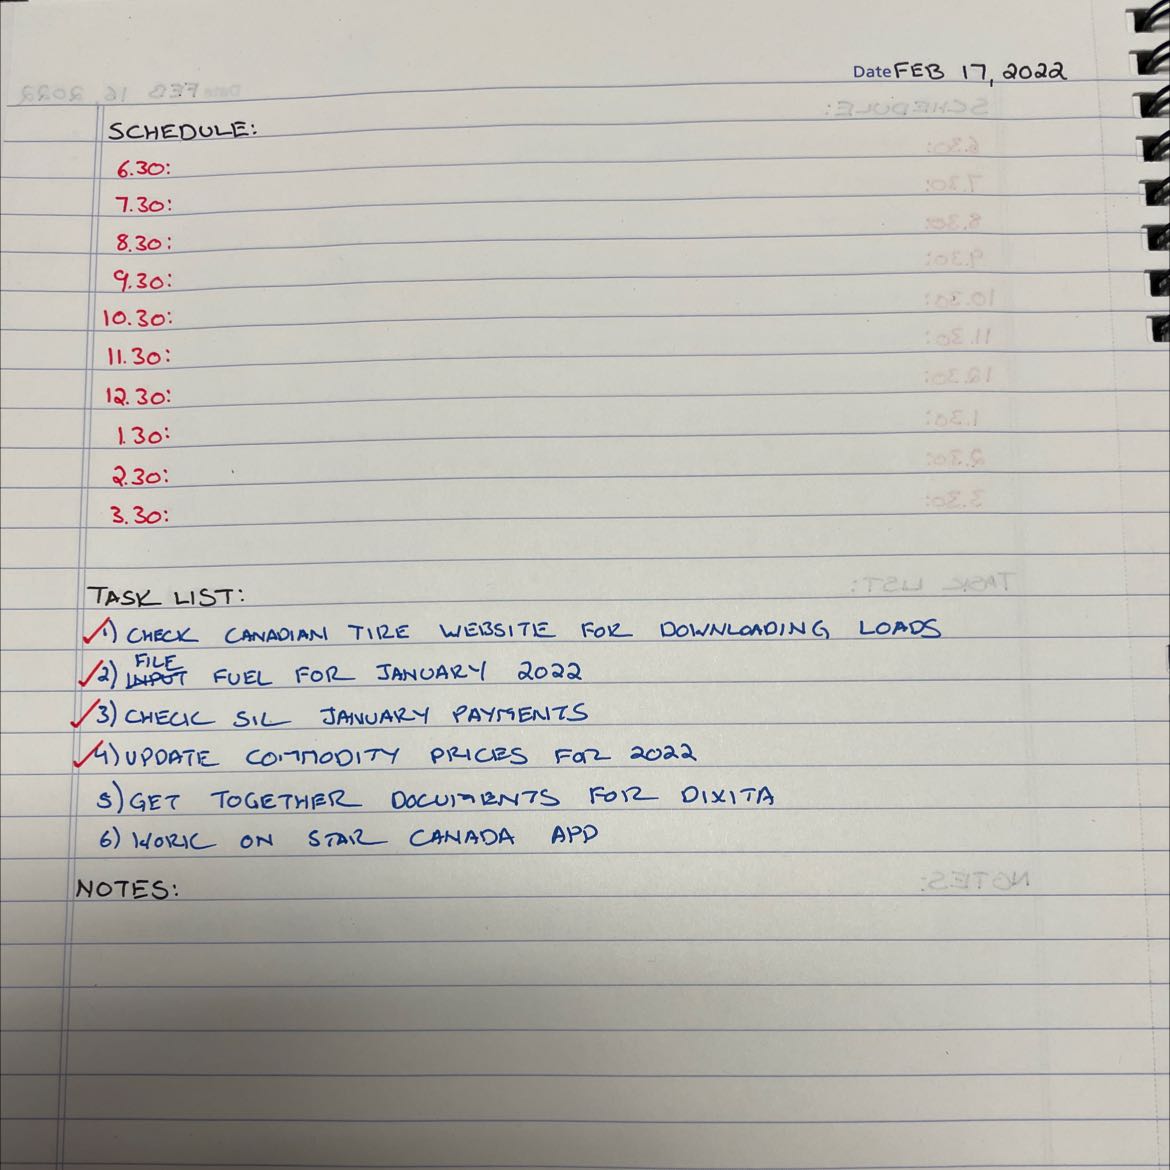 Date FEB 17, 2022
SCHEDULE:
6.30:
7.30:
8.30:
9.30:
10.30:
11.30:
12.30:
1.30:
2.30:
3.30:
TASK LIST:
1) CHECK CANADIAN TIRE WEBSITE FOR DOWNLOADING LOADS
FILE
2) INPUT FUEL FOR JANUARY 2022
3) CHECK SIL JANUARY PAYMENTS
4) UPDATE COMMODITY PRICES FOR 2022
5) GET TOGETHER DOCUMENTS FOR DIXITA
6) WORK ON STAR CANADA APP
NOTES: